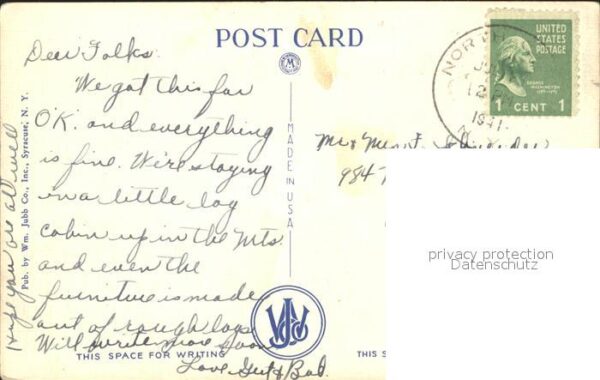 POST CARD
Dear Folks
We got this far
O.K. and everything
is fine. We're staying
in a little log
cabin up in the Mts
and even the
furniture is made
out of rough logs
Will write more soon
Love
Hope you are all well
Pub. by Wm. Jubb Co., Inc., Syracuse, N. Y.
THIS SPACE FOR WRITING
MADE IN USA
NORTH
12
1941
UNITED
STATES
POSTAGE
GEORGE
WASHINGTON
1 CENT 1
Mr & Mrs
984
THIS S
privacy protection
Datenschutz